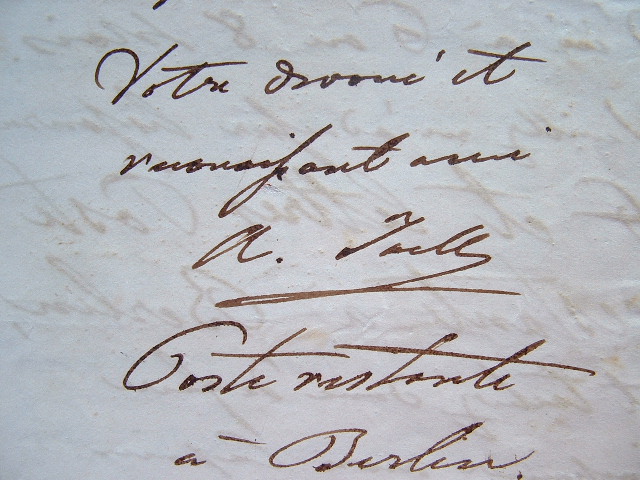 Votre dévoué et
reconnaissant ami
A. Jaëll
Poste restante
à Berlin.